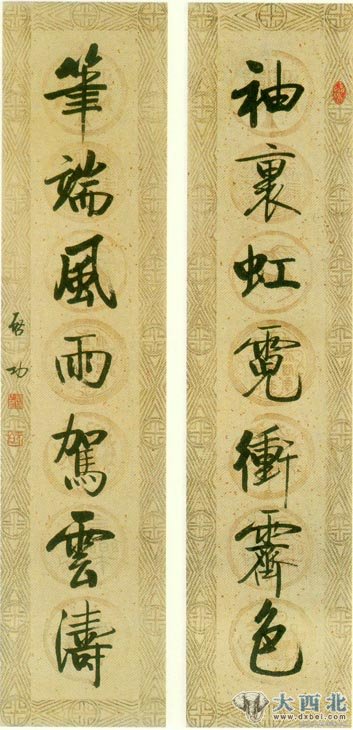 袖裏虹霓衝霽色
筆端風雨駕雲濤
啓功
大西北
www.dxbei.com